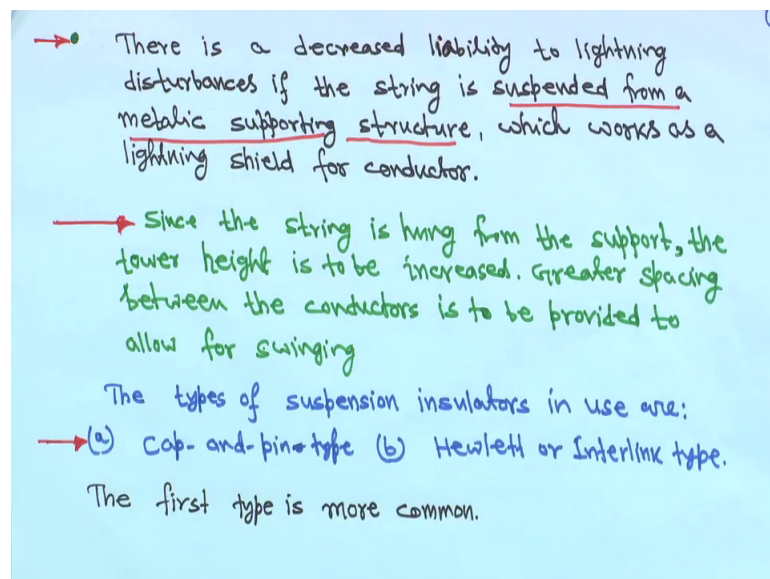 There is a decreased liability to lightning
disturbances if the string is suspended from a
metalic supporting structure, which works as a
lightning shield for conductor.
Since the string is hung from the support, the
tower height is to be increased. Greater spacing
between the conductors is to be provided to
allow for swinging
The types of suspension insulators in use are:
(a) Cap-and-pin-type (b) Hewlett or Interlink type.
The first type is more common.